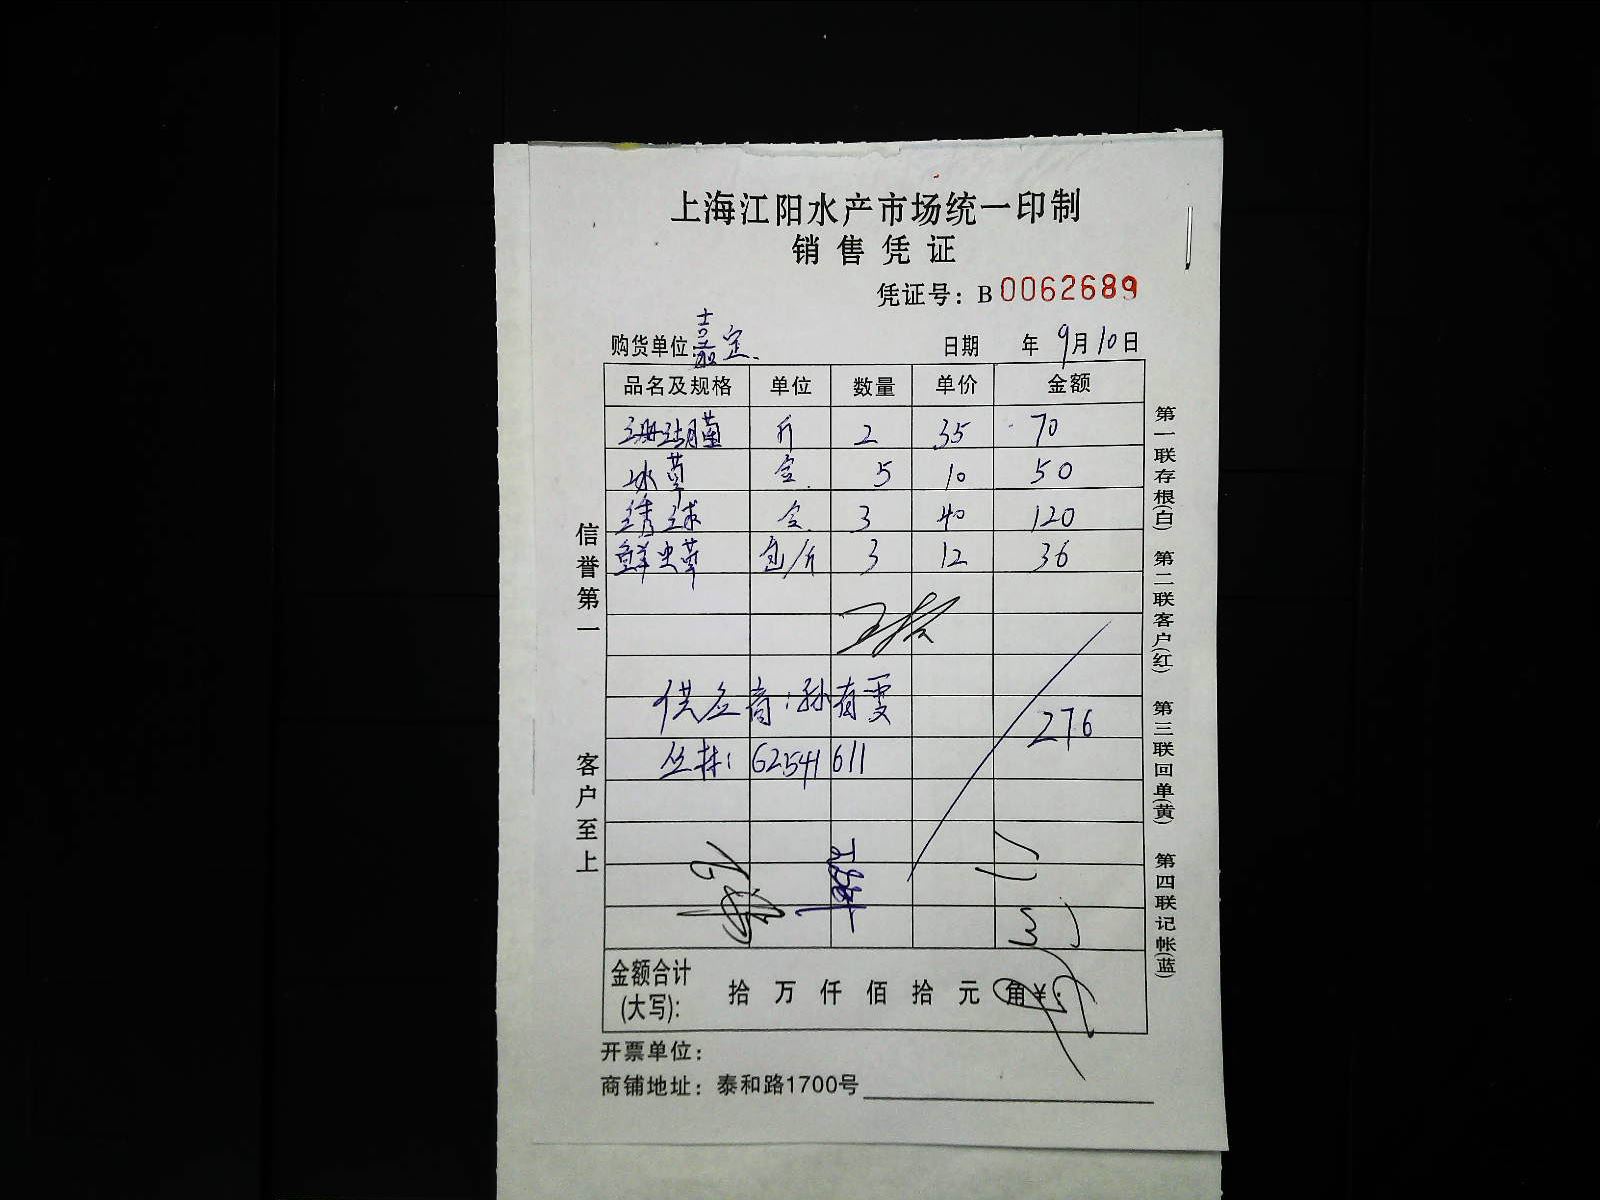 上海江阳水产市场统一印制
销售凭证
凭证号：B0062689
购货单位 嘉定
日期 年 9月10日
品名及规格 单位 数量 单价 金额
珊瑚菌 斤 2 35 70
冰草 盒 5 10 50
绣球 盒 3 40 120
鲜虫草 包/斤 3 12 36
供应商：孙有雯
276
丛林：62541611
金额合计
(大写)：
拾 万 仟 佰 拾 元 角 ¥：
开票单位：
商铺地址：泰和路1700号
信誉第一
客户至上
第一联存根(白) 第二联客户(红) 第三联回单(黄) 第四联记帐(蓝)